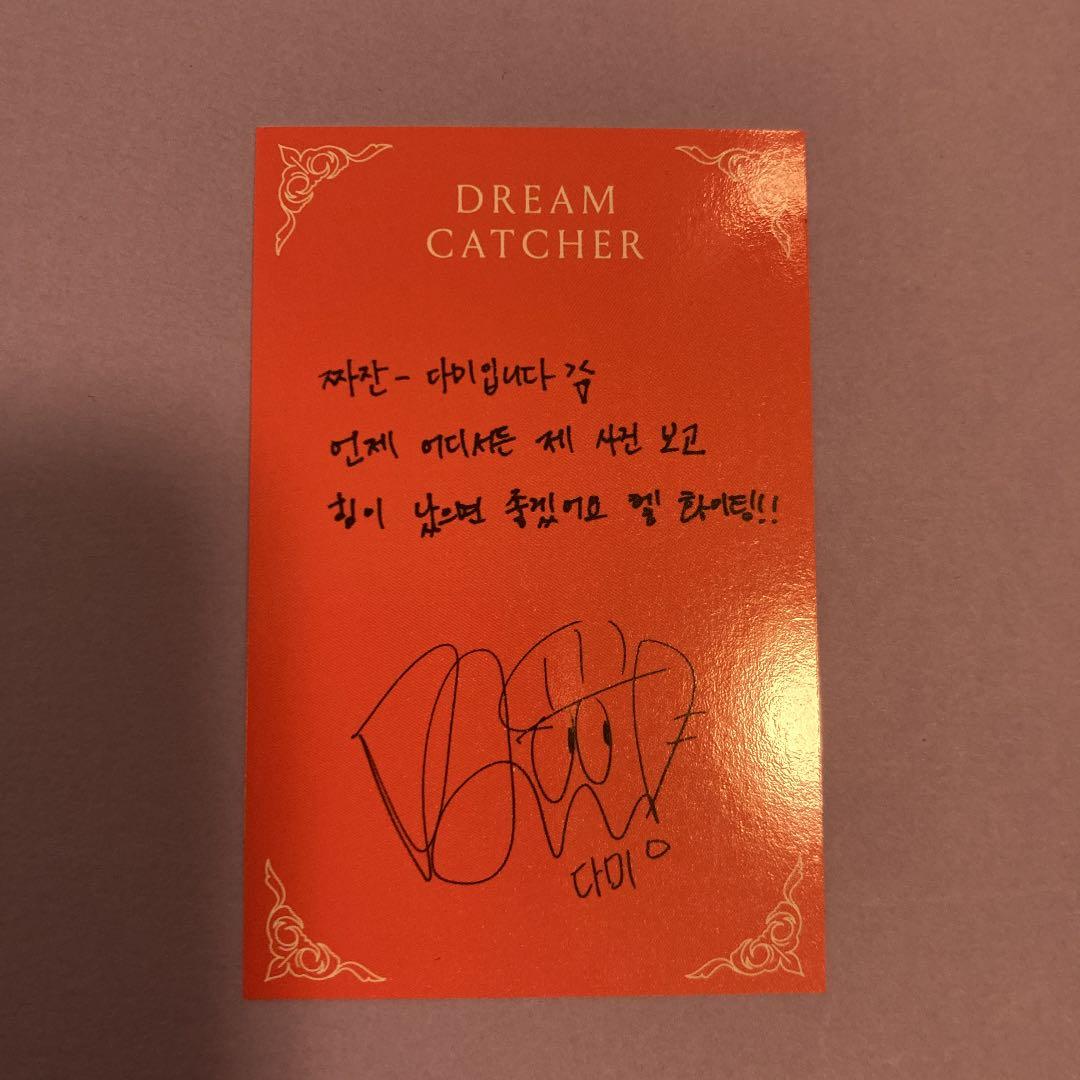 DREAM
CATCHER
짜잔 - 다미입니다
언제 어디서든 제 사진 보고
힘이 났으면 좋겠어요 헿 화이팅!!
다미